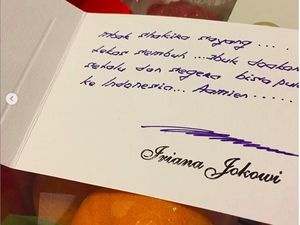 mbak shakira sayang ....
lekas sembuh ... ibuk doakan
selalu dan segera bisa pula
ke Indonesia... Aamien ....
Iriana Jokowi